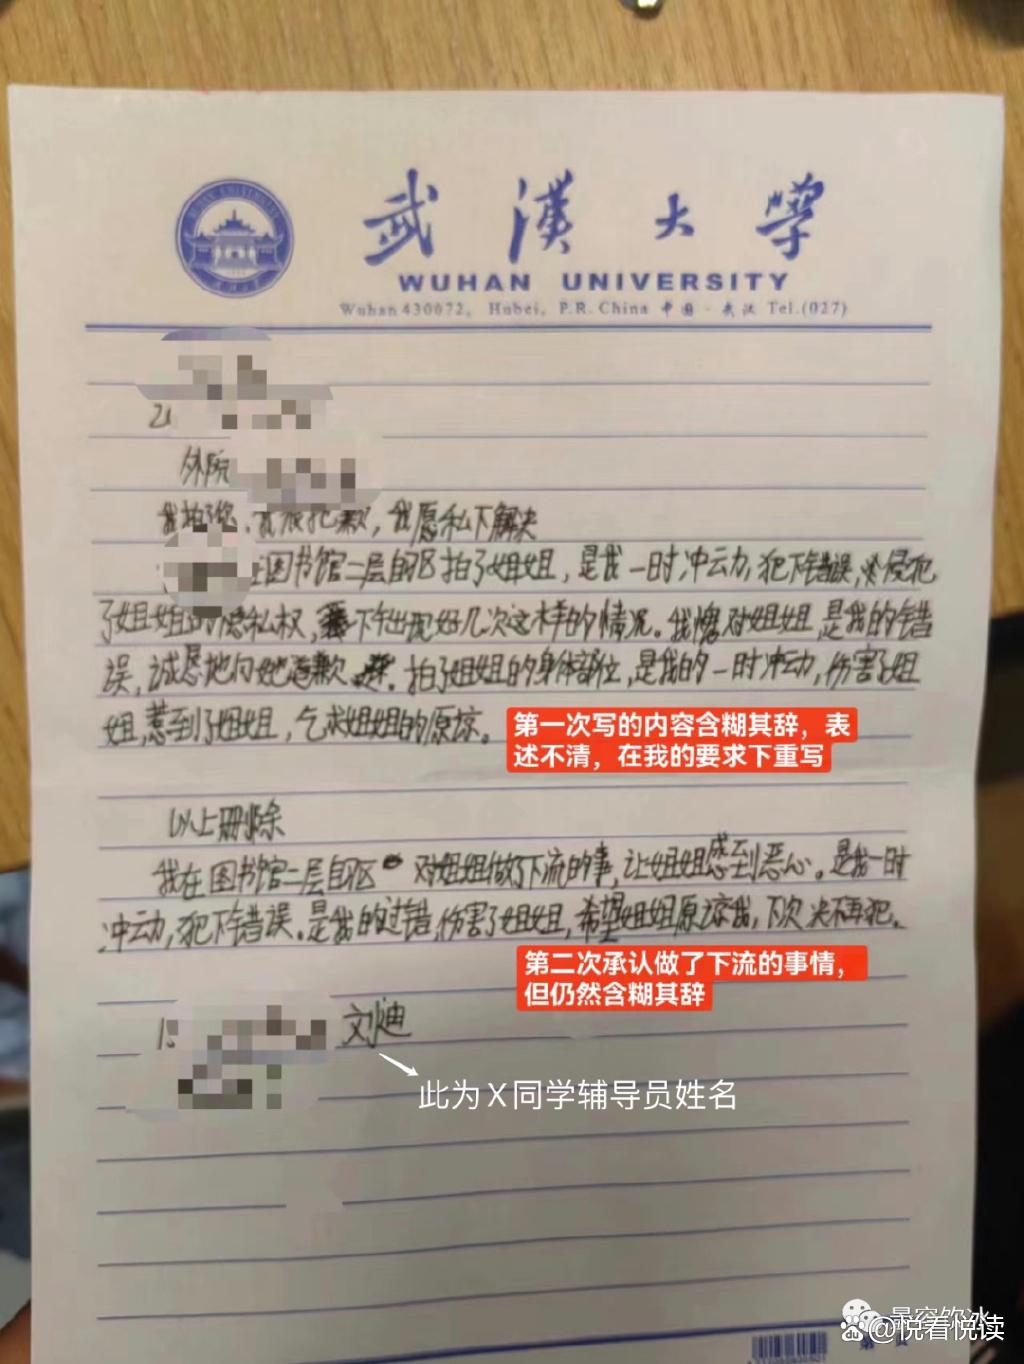 武漢大學
WUHAN UNIVERSITY
Wuhan 430072, Hubei, P.R. China 中国·武汉 Tel.(027)
外院
我拍了您,我很抱歉,我愿私下解决
在图书馆二层自习区拍了姐姐,是我一时冲动,犯下错误,侵犯
了姐姐的隐私权,下午出现好几次这样的情况。我愧对姐姐,是我的错
误,诚恳地向她道歉。拍了姐姐的身体部位,是我的一时冲动,伤害了姐
姐,惹到了姐姐,乞求姐姐的原谅。
第一次写的内容含糊其辞,表
述不清,在我的要求下重写
以上删除
我在图书馆二层自习区对姐姐做了下流的事,让姐姐感到恶心。是我一时
冲动,犯下错误。是我的过错,伤害了姐姐,希望姐姐原谅我,下次决不再犯。
第二次承认做了下流的事情,
但仍然含糊其辞
刘迪
此为X同学辅导员姓名
星空饮冰
@悦看悦读